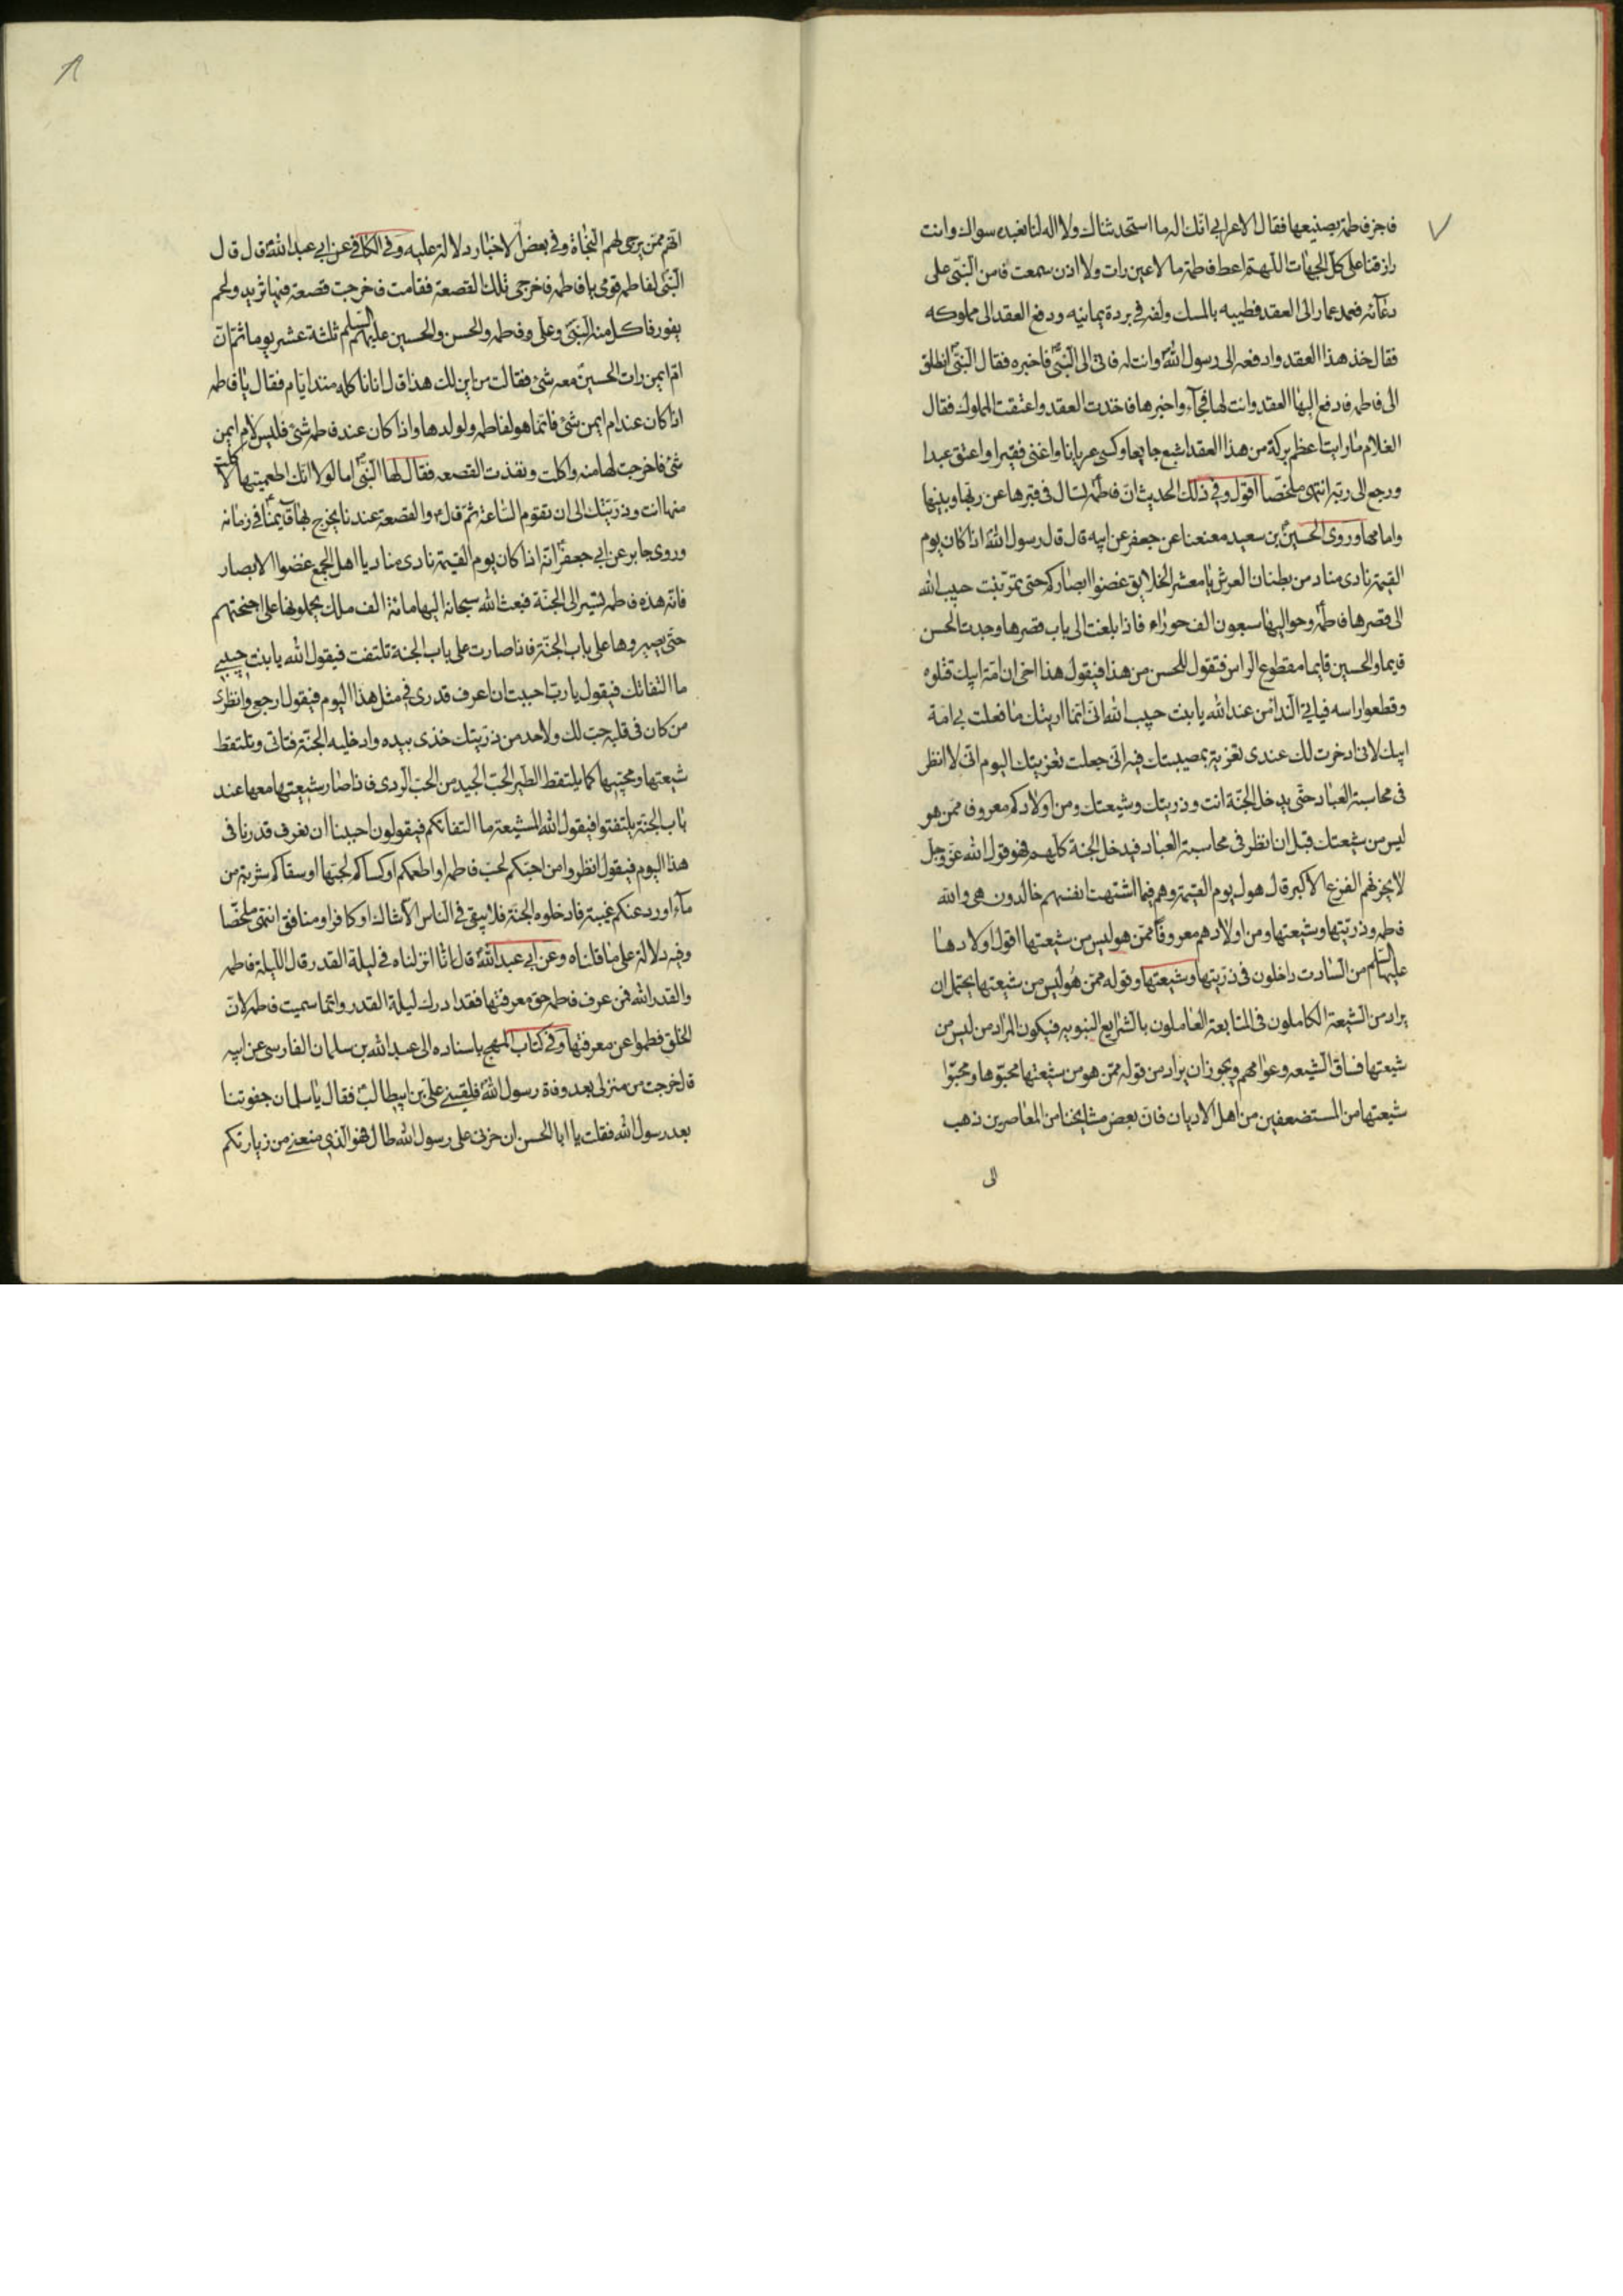 ٧
فاجز فاطمة بصنيعها فقال الاعرابي انك اله ما استحدثناك ولا اله لنا نعبده سواك وانت
رازقنا على كل الجهات اللهم اعط فاطمة ما لا عين رات ولا اذن سمعت فامن النبي على
دعائه فعمد عمار الى العقد فطيبه بالمسك ولفه في بردة يمانيه ودفع العقد الى مملوكه
فقال خذ هذا العقد وادفعه الى رسول الله وانت له فاتى الى النبي فاخبره فقال النبي انطلق
الى فاطمه فادفع اليها العقد وانت لها فجآء واخبرها فاخذت العقد واعتقت المملوك فقال
الغلام ما رايت اعظم بركة من هذا العقد اشبع جايعا وكسى عريانا واغنى فقيرا واعتق عبدا
ورجع الى ربه انتهى ملخصا اقول وفي ذلك الحديث ان فاطمة تسال في قبرها عن ربها وبنيها
وامامها وروى الحسين بن سعيد معنعنا عن جعفر عن ابيه قال قال رسول الله اذا كان يوم
القيمة نادى مناد من بطنان العرش يا معشر الخلايق غضوا ابصاركم حتى تمر بنت حبيب الله
الى قصرها فاطمة وحواليها سبعون الف حوراء فاذا بلغت الى باب قصرها وجدت الحسن
قايما والحسين قايما مقطوع الراس فتقول للحسن من هذا فيقول هذا اخى ان امة ابيك قتلوه
وقطعوا راسه فياتي الندا من عند الله يا بنت حبيب الله اني انما اريتك ما فعلت به امة
ابيك لاني ادخرت لك عندى تعزية بمصيبتك فيه اني جعلت تعزيتك اليوم اني لا انظر
في محاسبة العباد حتى يدخل الجنة انت وذريتك وشيعتك ومن اولادكم معروف ممن هو
ليس من شيعتك قبل ان انظر في محاسبة العباد فيدخل الجنة كلهم فهو قول الله عز وجل
لا يحزنهم الفزع الاكبر قال هول يوم القيمة وهم فيما اشتهت انفسهم خالدون هي والله
فاطمه وذريتها وشيعتها ومن اولادهم معروفا ممن هو ليس من شيعتها اقول اولادها
عليها السلم من السادت داخلون في ذريتها وشيعتها وقوله ممن هو ليس من شيعتها يحتمل ان
يراد من الشيعة الكاملون في المتابعة العاملون بالشرايع النبويه فيكون المراد من ليس من
شيعتها فساق الشيعه وعوامهم ويجوز ان يراد من قوله ممن هو من شيعتها محبوها ومحبوا
شيعتها من المستضعفين من اهل الاديان فان بعض مشايخنا من المعاصرين ذهب
الى
٨
انهم ممن يرجى لهم النجاة وفي بعض الاخبار دلالة عليه وفي الكافي عن ابي عبد الله قال قال
النبي لفاطمه قومى يا فاطمه فاخرجى تلك القصعة فقامت فاخرجت قصعة فيها ثريد ولحم
يفور فاكل منه النبي وعلى وفاطمه والحسن والحسين عليهم السلم ثلثة عشر يوما ثم ان
ام ايمن رات الحسين معه شئ فقالت من اين لك هذا قال انا ناكله منذ ايام فقال يا فاطمه
اذا كان عند ام ايمن شئ فانما هو لفاطمه ولولدها واذا كان عند فاطمه شئ فليس لام ايمن
شئ فاخرجت لها منه واكلت ونفذت القصعه فقال لها النبي اما لولا انك اطعمتيها لاكلت
منها انت وذريتك الى ان تقوم الساعة ثم قال والقصعة عندنا يخرج بها قآيمنا في زمانه
وروى جابر عن ابي جعفر انه اذا كان يوم القيمة نادى مناد يا اهل الجمع غضوا الابصار
فانه هذه فاطمه تسير الى الجنة فبعث الله سبحانه اليها مائة الف ملك يحملونها على اجنحتهم
حتى يصيروها على باب الجنة فاذا صارت على باب الجنة تلتفت فيقول الله يا بنت حبيبي
ما التفاتك فيقول يا رب احببت ان اعرف قدرى في مثل هذا اليوم فيقول ارجع وانظرى
من كان في قلبه حب لك ولاحد من ذريتك خذى بيده وادخليه الجنة فتاتي وتلتقط
شيعتها ومحبيها كما يلتقط الطير الحب الجيد من الحب الردى فاذا صار شيعتها معها عند
باب الجنة يلتفتوا فيقول الله للشيعة ما التفاتكم فيقولون احببنا ان نعرف قدرنا في
هذا اليوم فيقول انظروا من احبكم لحب فاطمه او اطعمكم او كساكم لحبها او سقاكم شربة من
مآء او رد عنكم غيبة فادخلوه الجنة فلا يبقى في الناس الا شاك او كافر او منافق انتهى ملخصا
وفيه دلالة على ما قلناه وعن ابي عبد الله قال انا انزلناه في ليلة القدر قال الليلة فاطمه
والقدر الله فمن عرف فاطمه حق معرفتها فقد ادرك ليلة القدر وانما سميت فاطمه لان
الخلق فطموا عن معرفتها وفي كتاب المهج باسناده الى عبد الله بن سلمان الفارسى عن ابيه
قال خرجت من منزلى بعد وفاة رسول الله فلقيني على بن ابيطالب فقال يا سلمان جفوتنا
بعد رسول الله فقلت يا ابا الحسن ان حزنى على رسول الله طال فهو الذي منعنى من زيارتكم